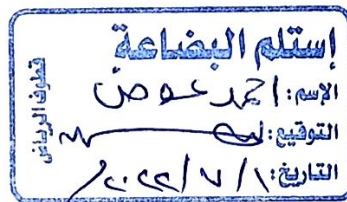 إستلم البضاعة
الإسم: احمد عوض
التوقيع:
التاريخ: ٢٠٢٢/٧/١
قطوف الرياض